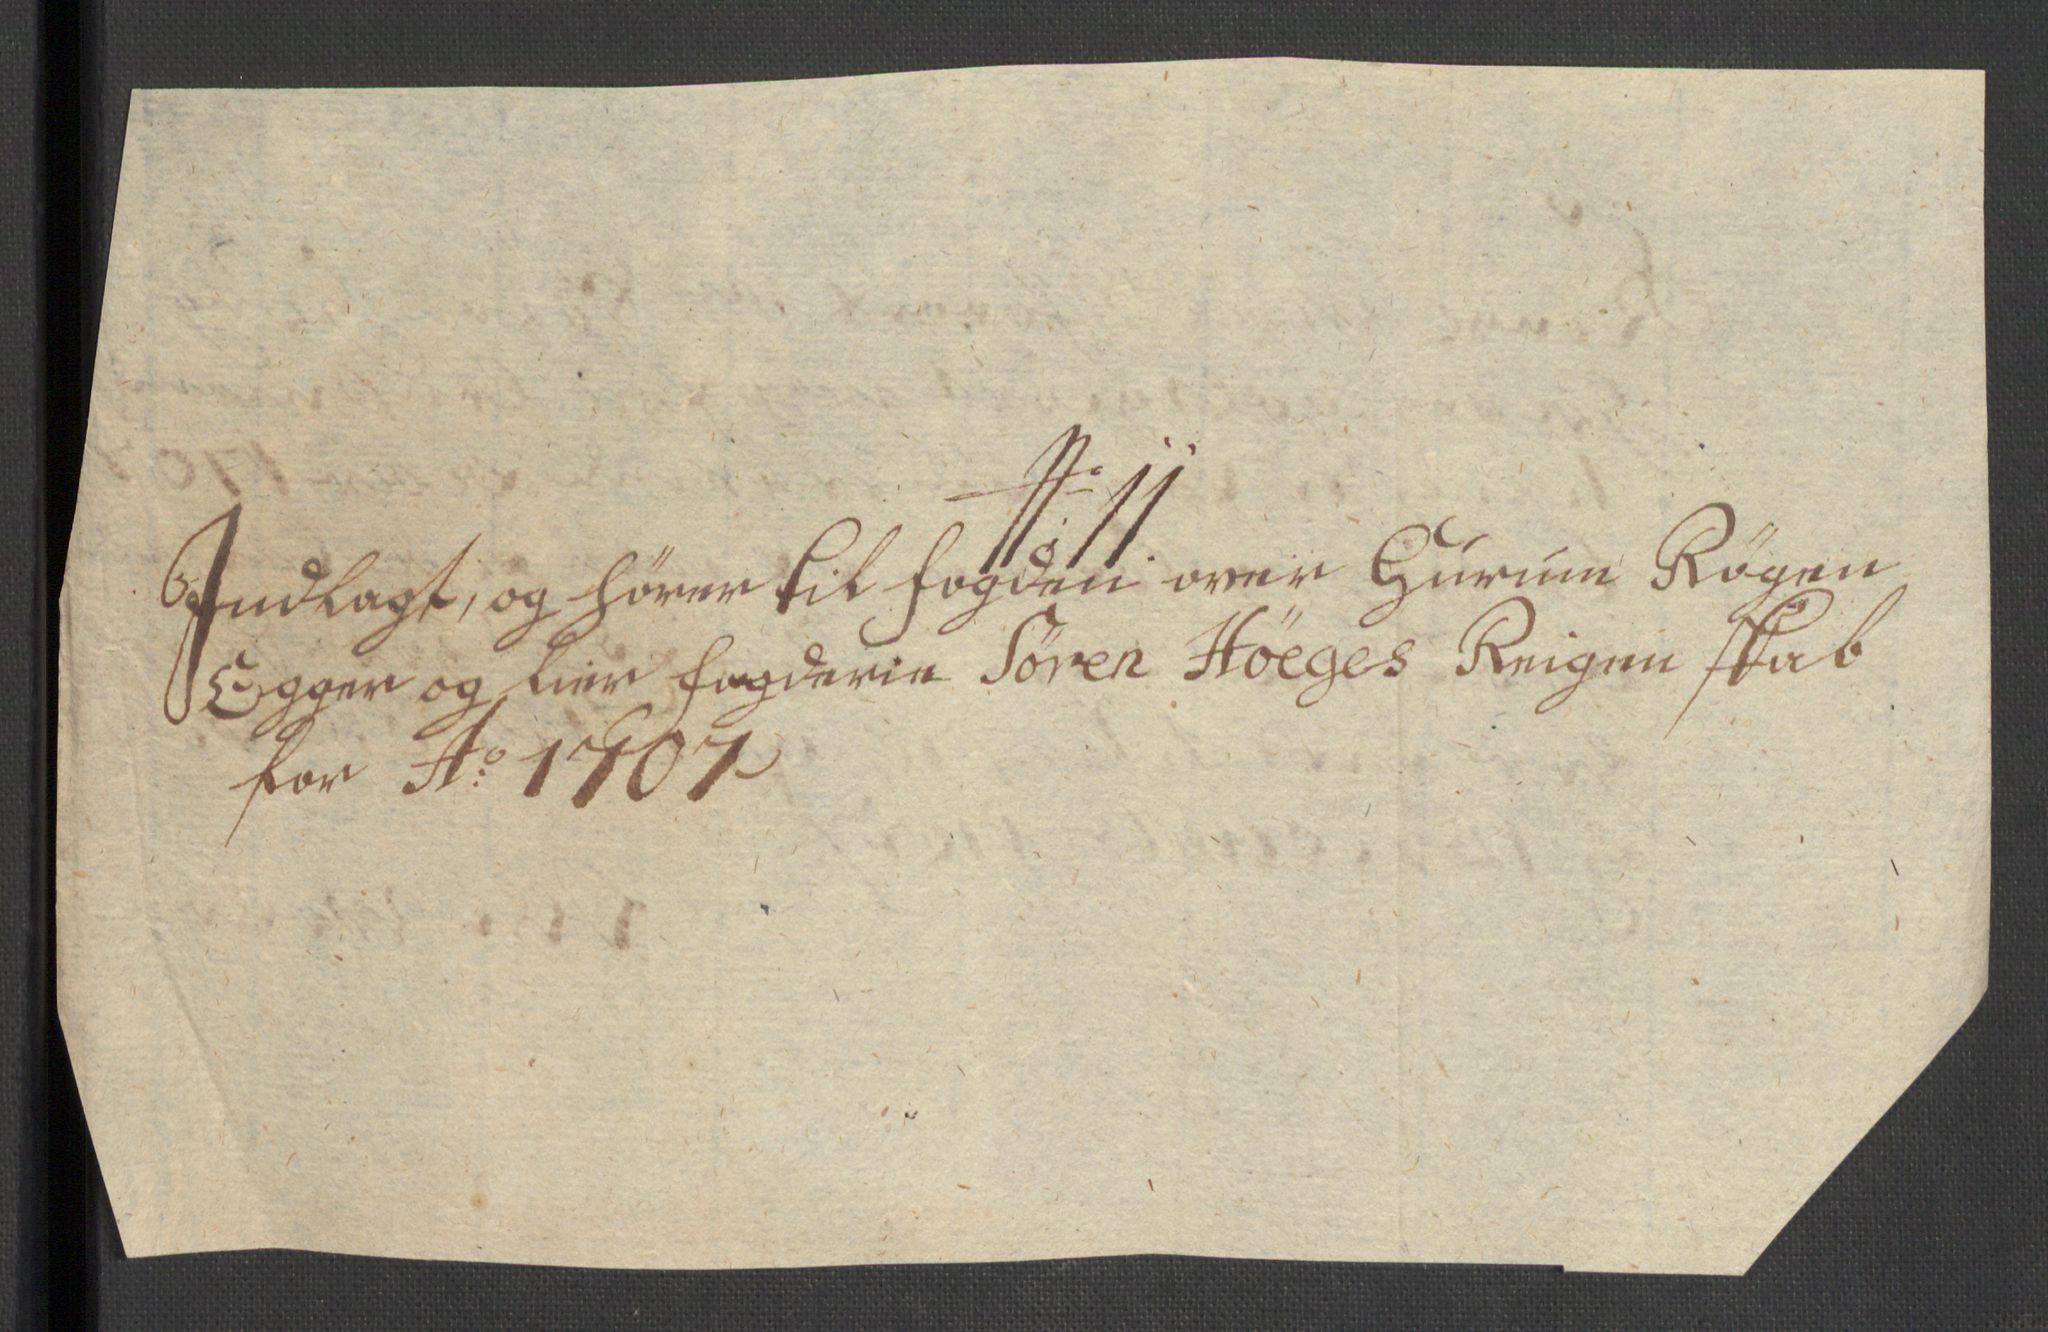 No: 11
Indlagt, og hörer til fogden over Hurum Røgen
Egger og Lier fogderie Sören Höeges Reigenskab
for Ao: 1707